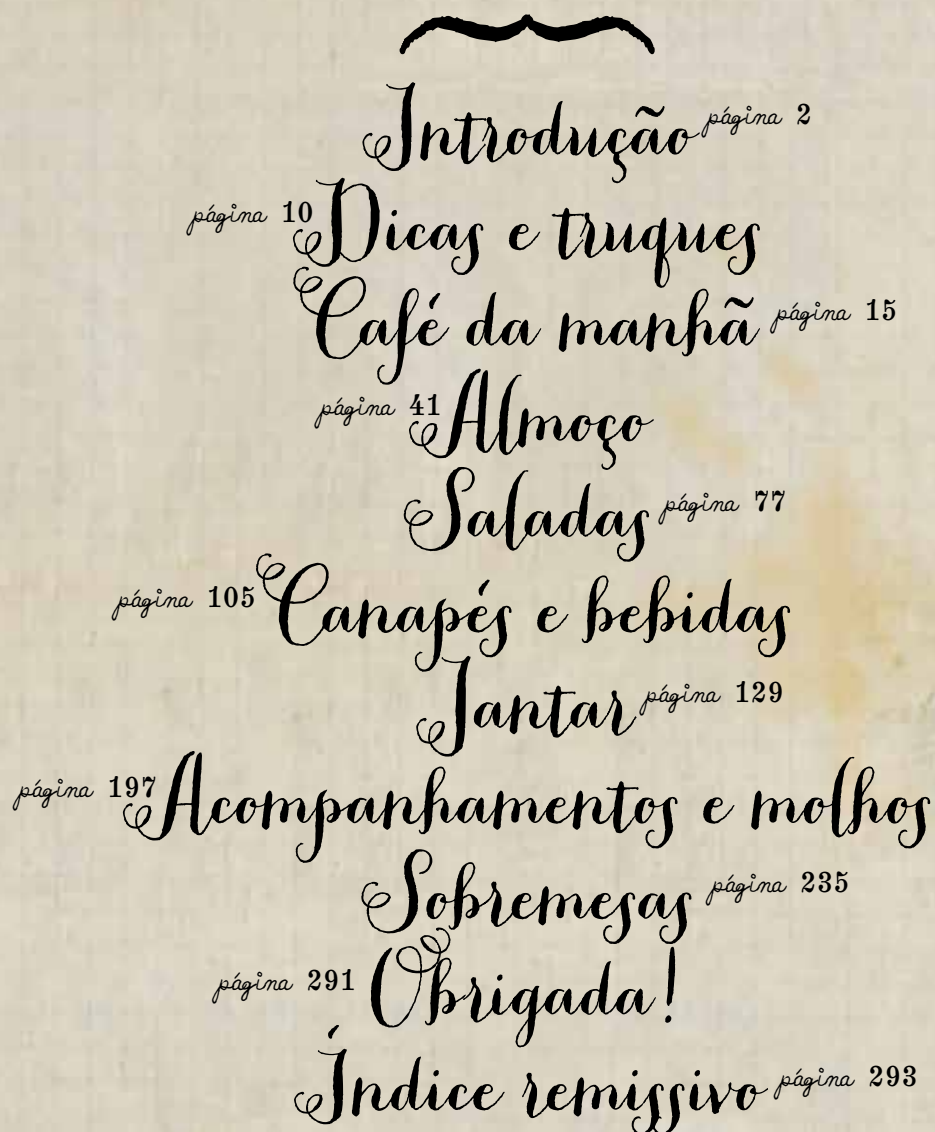 Introdução página 2
página 10 Dicas e truques
Café da manhã página 15
página 41 Almoço
Saladas página 77
página 105 Canapés e bebidas
Jantar página 129
página 197 Acompanhamentos e molhos
Sobremesas página 235
página 291 Obrigada!
Índice remissivo página 293